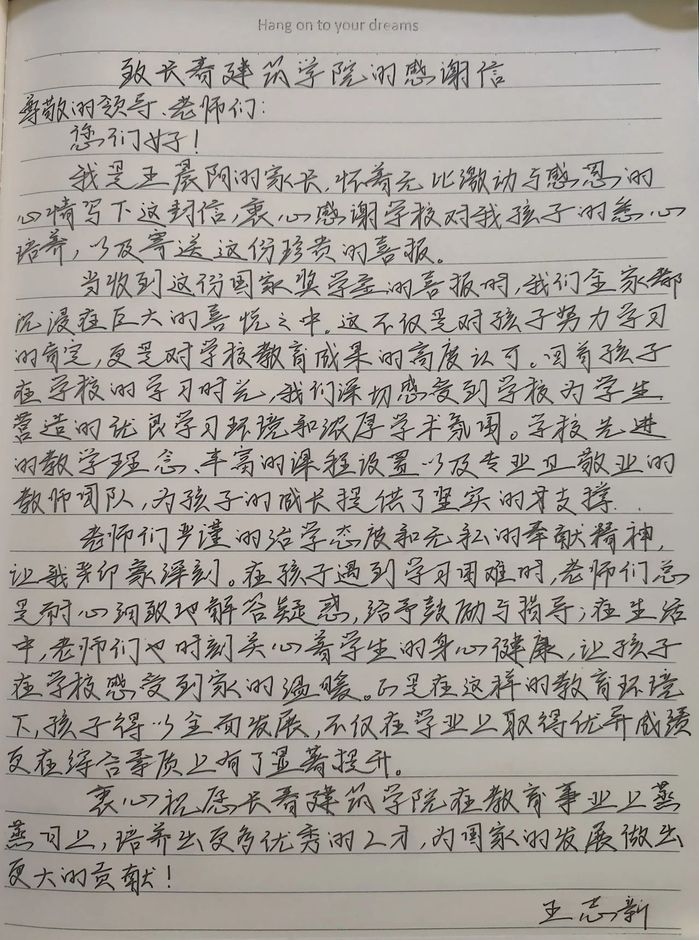 Hang on to your dreams
致长春建筑学院的感谢信
尊敬的领导、老师们:
您们好!
我是王晨阳的家长,怀着无比激动与感恩的
心情写下这封信,衷心感谢学校对我孩子的悉心
培养,以及寄送这份珍贵的喜报。
当收到这份国家奖学金的喜报时,我们全家都
沉浸在巨大的喜悦之中。这不仅是对孩子努力学习
的肯定,更是对学校教育成果的高度认可。回首孩子
在学校的学习时光,我们深切感受到学校为学生
营造的优良学习环境和浓厚学术氛围。学校先进
的教学理念、丰富的课程设置以及专业且敬业的
教师团队,为孩子的成长提供了坚实的支撑.
老师们严谨的治学态度和无私的奉献精神,
让我印象深刻。在孩子遇到学习困难时,老师们总
是耐心细致地解答疑惑,给予鼓励与指导;在生活
中,老师们也时刻关心着学生的身心健康,让孩子
在学校感受到家的温暖。正是在这样的教育环境
下,孩子得以全面发展,不仅在学业上取得优异成绩
更在综合素质上有了显著提升。
衷心祝愿长春建筑学院在教育事业上蒸
蒸日上,培养出更多优秀的人才,为国家的发展做出
更大的贡献!
王志新